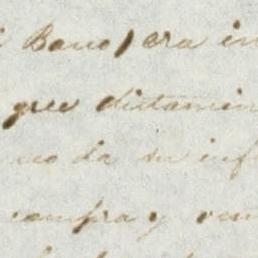 Banco) era in
que dictamin
no da su inf
compra y ven